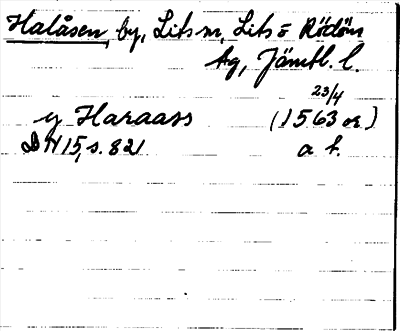 Halåsen, by, Lits sn, Lits o Rödöns
tg, Jämtl. l.
23/4
y Haraass (1563 or)
DN 15, s. 821 a b.